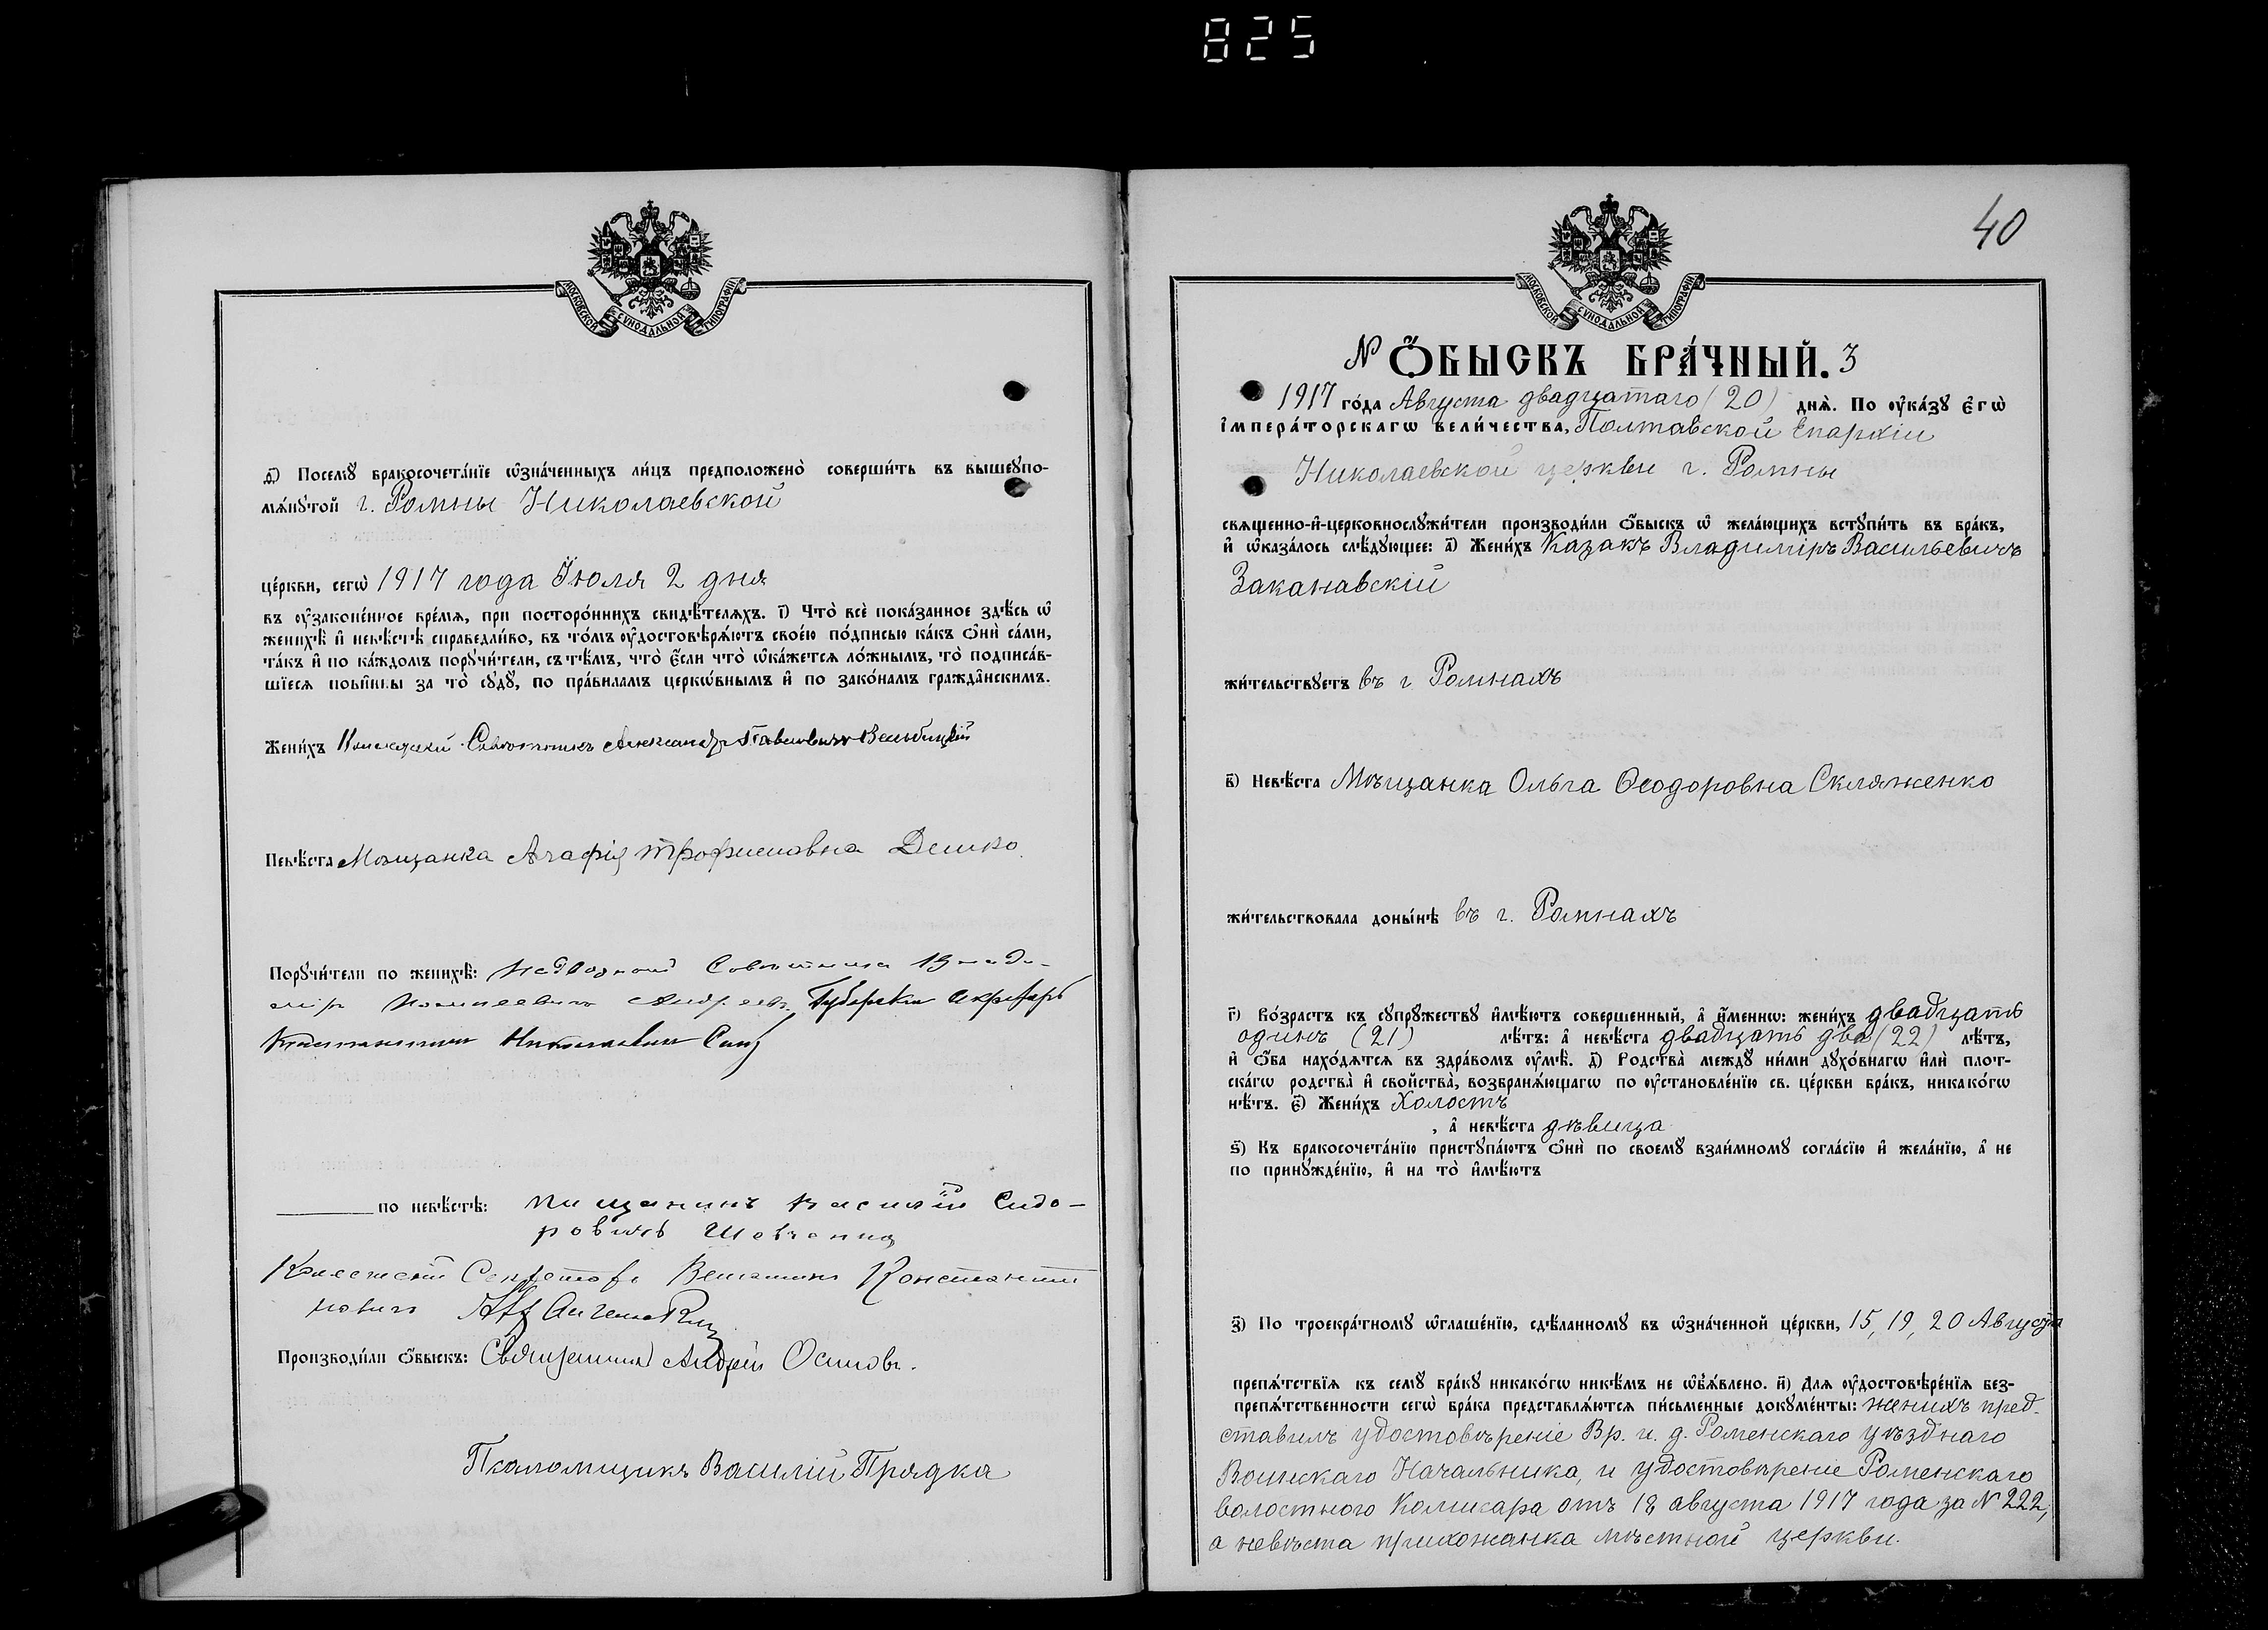 825
МОСКОВСКОЙ СУНОДАЛЬНОЙ ТИПОГРАФІИ
ѳ҃) Посемꙋ бракосочета́нїе ѡ҆зна́ченныхъ ли́цъ предположено̀ соверши́ть въ вышеꙋпо-
мѧ́нꙋтой г. Ромны Николаевской
це́ркви, сегѡ̀ 1917 года Іюля 2 дня
въ ᲂу҆законе́нное вре́мѧ, при посторо́ннихъ свидѣ́телѧхъ. і҃) Что̀ всѐ пока́занное здѣ́сь ѡ҆
женихѣ̀ и҆ невѣ́стѣ справедли́во, въ то́мъ ᲂу҆достовѣрѧ́ютъ свое́ю по́дписью ка́къ ѻ҆нѝ са́ми,
та́къ и҆ по ка́ждомъ порꙋчи́тели, съ тѣ́мъ, что̀ є҆́сли что̀ ѡ҆ка́жетсѧ ло́жнымъ, то̀ подписа́в-
шїесѧ пови́нны за то̀ сꙋдꙋ̀, по пра́виламъ церкѡ́внымъ и҆ по зако́намъ гражда̂нскимъ.
Жени́хъ Совѣтникъ Александръ Павловичъ
Невѣ́ста Мѣщанка Агафія Трофимовна Демко
Порꙋчи́тели по женихѣ̀: Надворной Совѣтника Влади-
міръ Андреевъ
Константинъ Николаевич
по невѣ́стѣ: мищанинъ Василій Сидо-
ровичь Шевченко
Секретарь Веніаминъ Константи
новичъ
Производи́ли ѻ҆́быскъ: Священникъ Андрей Осиповъ.
Псаломщикъ Василій Прядка
40
МОСКОВСКОЙ СУНОДАЛЬНОЙ ТИПОГРАФІИ
N Ѻ҆́БЫСКЪ БРА́ЧНЫЙ. 3
1917 го́да Августа двадцатаго (20) днѧ̀. По ᲂу҆ка́зꙋ є҆гѡ̀
і҆мпера́торскагѡ вели́чества, Полтавской Епархіи
Николаевской церкви г. Ромны
свѧщенно-и҆-церковнослꙋжи́тели производи́ли ѻ҆́быскъ ѡ҆ жела́ющихъ встꙋпи́ть въ бра́къ,
и҆ ѡ҆каза́лось слѣ́дꙋющее: а҃) Жени́хъ Казакъ Владиміръ Васильевичъ
Заканавскій
жи́тельствꙋетъ въ г Ромнахъ
в҃) Невѣ́ста Мѣщанка Ольга Ѳеодоровна Скляженко
жи́тельствовала доны́нѣ въ г. Ромнахъ
г҃) Во́зрастъ къ сꙋпрꙋ́жествꙋ и҆мѣ́ютъ совершенный, а҆ и҆́меннѡ: жени́хъ двадцать
одинъ (21) лѣ́тъ: а҆ невѣ́ста двадцать два (22) лѣ́тъ,
и҆ ѻ҆́ба нахо́дѧтсѧ въ здра́вомъ ᲂу҆мѣ̀. д҃) Родства̀ междꙋ ни́ми дꙋхо́внагѡ и҆лѝ плот-
ска́гѡ родства̀ и҆ свойства̀, возбранѧ́ющагѡ по ᲂу҆становле́нїю св. це́ркви бра́къ, никако́гѡ
нѣ́тъ. є҃) Жени́хъ холостъ
, а҆ невѣ́ста дѣвица
ѕ҃) Къ бракосочета́нїю пристꙋпа́ютъ ѻ҆нѝ по своемꙋ̀ взаи́мномꙋ согла́сїю и҆ жела́нїю, а҆ не
по принꙋжде́нїю, и҆ на то̀ и҆мѣ́ютъ
з҃) По троекра́тномꙋ ѡ҆глаше́нїю, сдѣ́ланномꙋ въ ѡ҆зна́ченной це́ркви, 15, 19, 20 Августа
препѧ́тствїѧ къ семꙋ̀ бра́кꙋ никако́гѡ никѣ́мъ не ѡ҆б̾ѧ́влено. и҃) Длѧ ᲂу҆достовѣре́нїѧ без-
препѧ́тственности сегѡ̀ бра́ка представлѧ́ютсѧ пи́сьменные докꙋме́нты: женихъ пред-
ставилъ удостовѣреніе Вр. и. д. Роменскаго уѣзднаго
Воинскаго Начальника, и удостовѣреніе Роменскаго
волостного Комисара отъ 18 августа 1917 года за N 222,
а невѣста прихожанка мѣстной церкви.